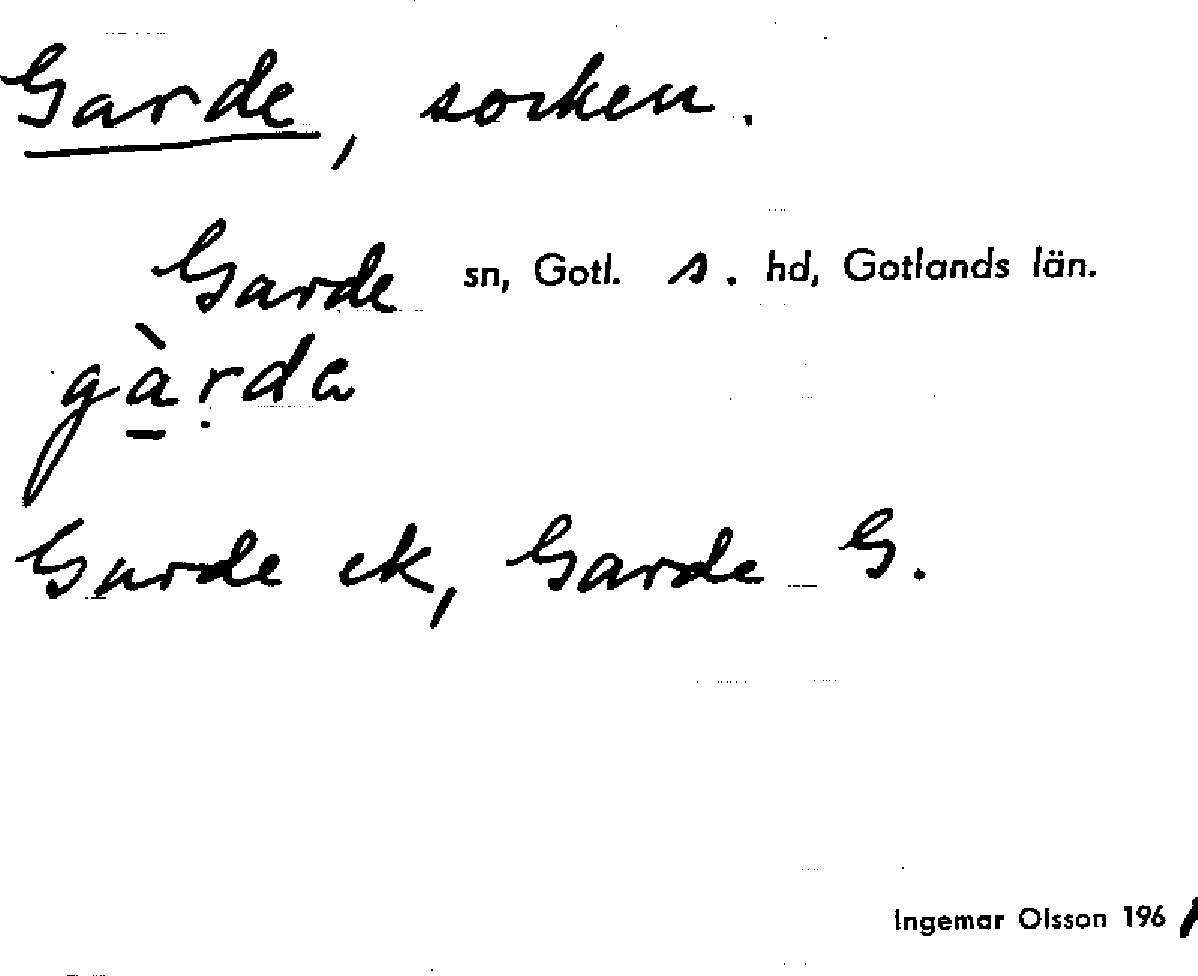 Garde, socken.
Garde sn, Gotl. s. hd, Gotlands län.
gà̱ṛda
Garde ek, Garde G.
Ingemar Olsson 1961